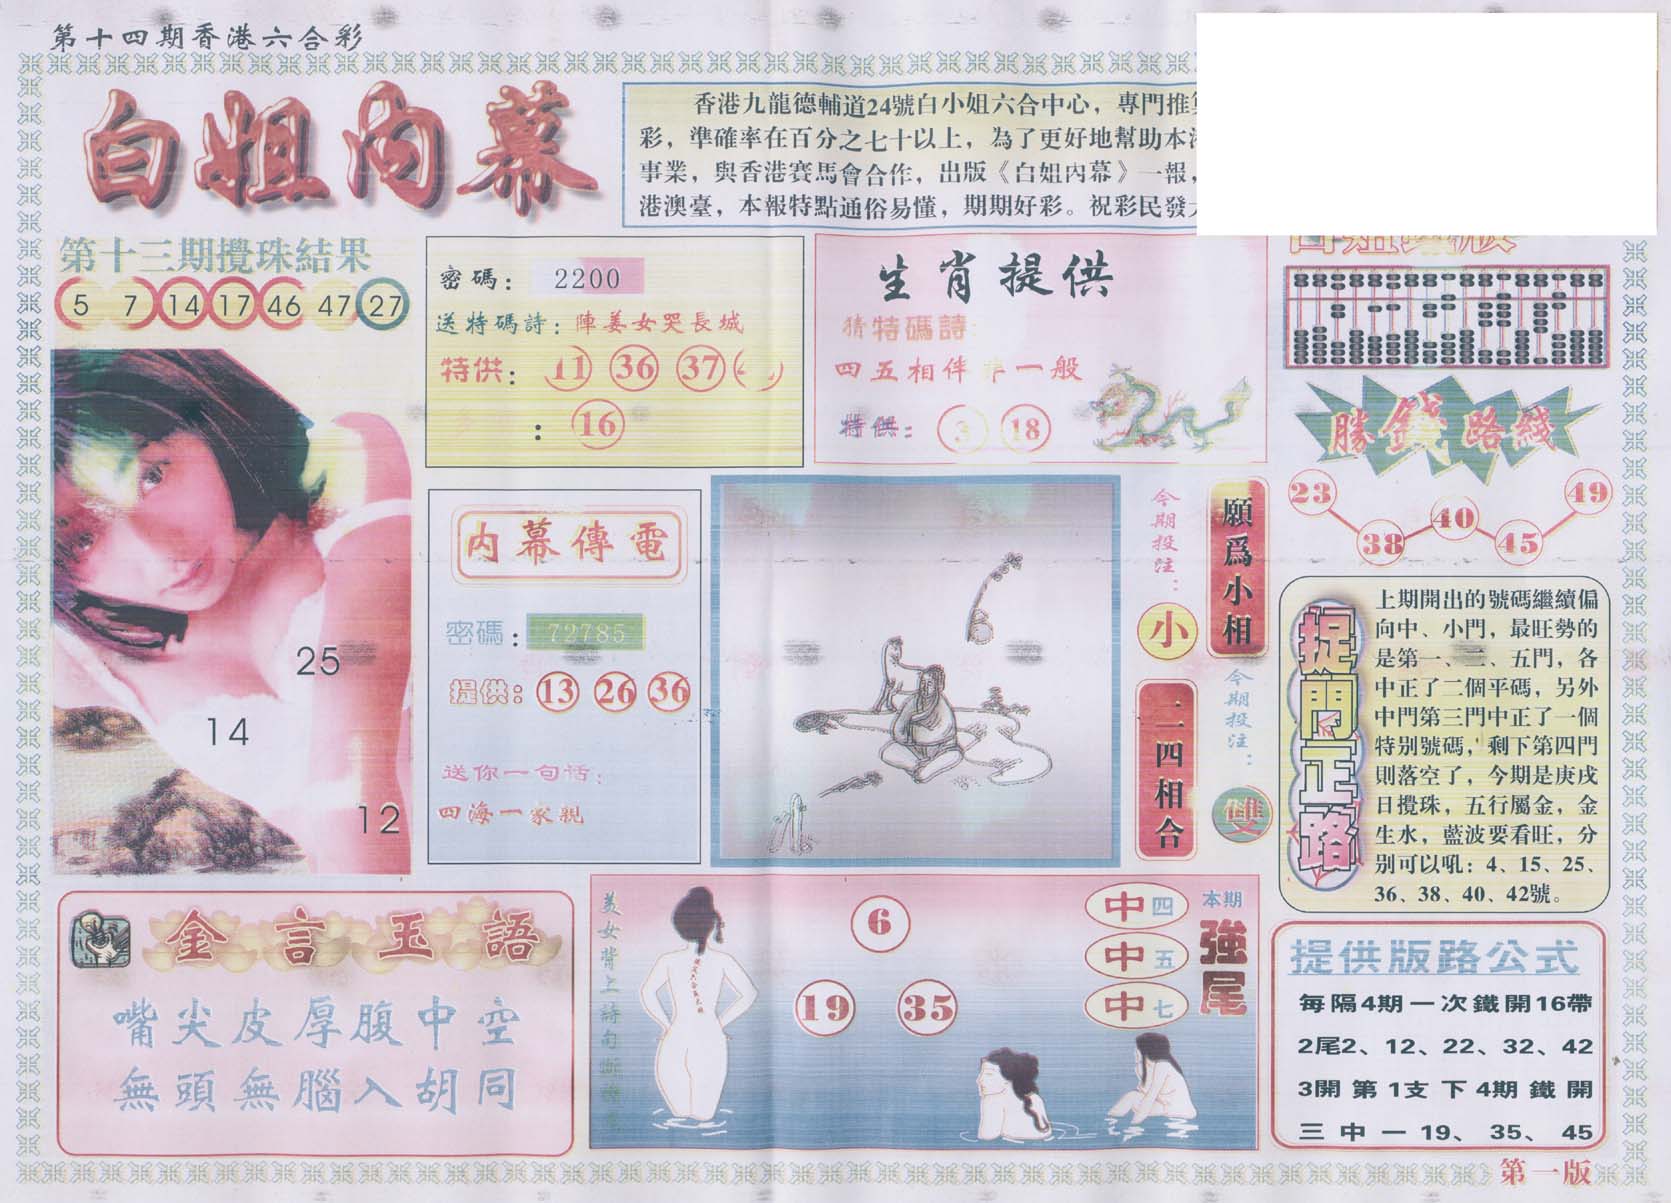 第十四期香港六合彩
白姐内幕
香港九龍德輔道24號白小姐六合中心，專門推
彩，準確率在百分之七十以上，為了更好地幫助本
事業，與香港賽馬會合作，出版《白姐內幕》一報，
港澳臺，本報特點通俗易懂，期期好彩。祝彩民發
第十三期攪珠結果
5 7 14 17 46 47 27
25
14
12
密碼： 2200
送特碼詩：陣姜女哭長城
特供： 11 36 37
： 16
生肖提供
猜特碼詩
四五相伴非一般
特供： 3 18
勝錢路綫
23 38 40 45 49
内幕傳電
密碼：72785
提供：13 26 36
送你一句话：
四海一家親
今期投注：
小
願爲小相
二四相合
今期投注：
雙
捉門正路
上期開出的號碼繼續偏
向中、小門，最旺勢的
是第一、二、五門，各
中正了二個平碼，另外
中門第三門中正了一個
特别號碼，剩下第四門
則落空了，今期是庚戌
日攪珠，五行屬金，金
生水，藍波要看旺，分
别可以吼：4、15、25、
36、38、40、42號。
金言玉語
嘴尖皮厚腹中空
無頭無腦入胡同
美女背上詩句
6
19 35
中四
中五
中七
本期
強尾
提供版路公式
每隔4期一次鐵開16帶
2尾2、12、22、32、42
3開第1支下4期鐵開
三中一19、35、45
第一版